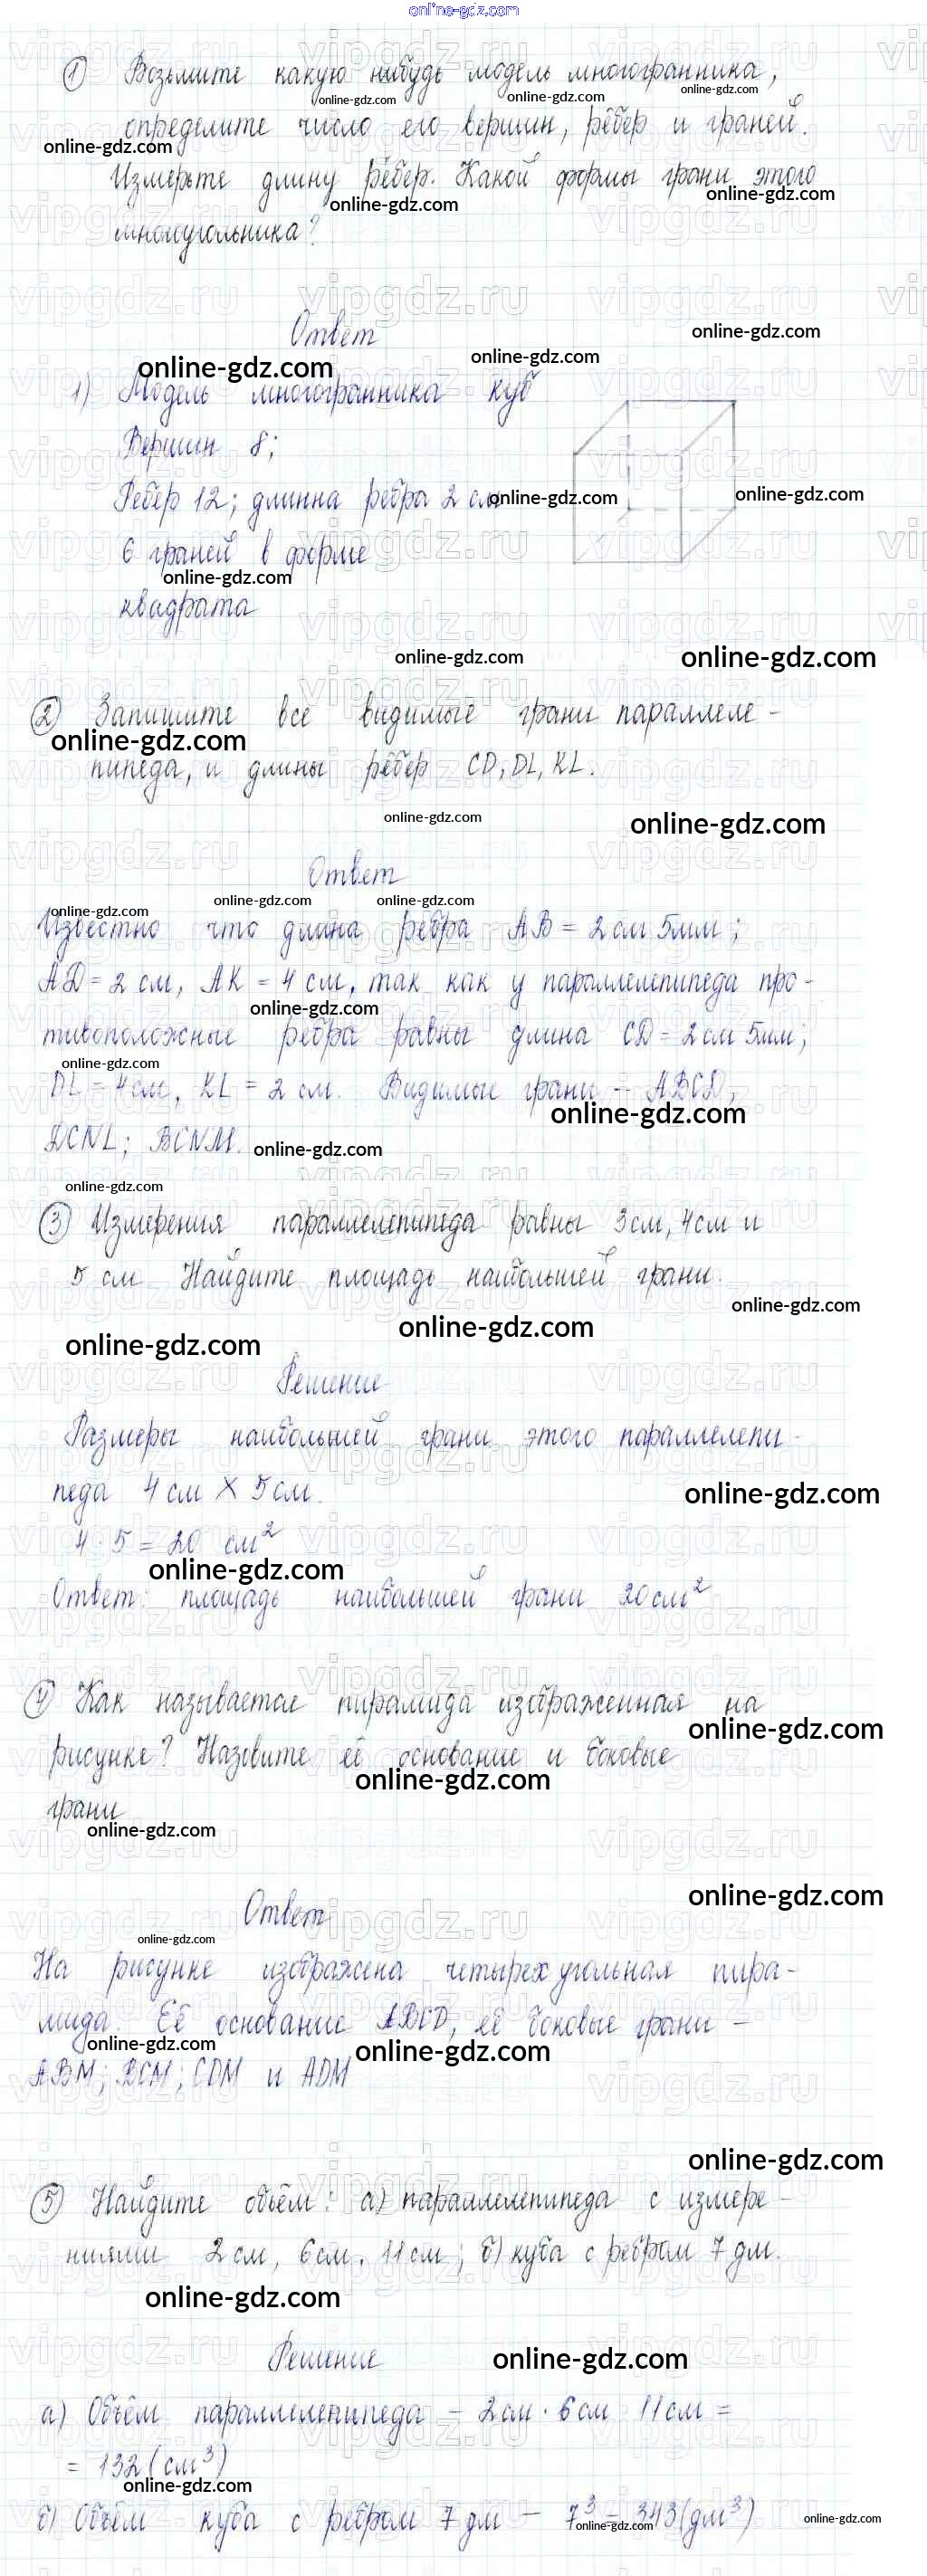 online-gdz.com
① Возьмите какую нибудь модель многогранника,
определите число его вершин, рёбер и граней.
Измерьте длину рёбер. Какой формы грани этого
многоугольника?
Ответ
1) Модель многогранника куб
Вершин 8;
Рёбер 12; длинна ребра 2 см
6 граней в форме
квадрата
② Запишите все видимые грани параллеле-
пипеда, и длины рёбер CD, DL, KL.
Ответ
Известно что длина ребра AB = 2 см 5мм;
AD = 2 см, AK = 4 см, так как у параллелепипеда про-
тивоположные ребра равны длина CD = 2 см 5мм;
DL = 4см, KL = 2 см. Видимые грани - ABCD,
DCNL; BCNM.
③ Измерения параллелепипеда равны 3см, 4см и
5 см. Найдите площадь наибольшей грани.
Решение
Размеры наибольшей грани этого параллелепи-
педа 4 см X 5 см.
4 · 5 = 20 см²
Ответ: площадь наибольшей грани 20 см²
④ Как называется пирамида изображенная на
рисунке? Назовите её основание и боковые
грани
Ответ
На рисунке изображена четырехугольная пира-
мида. Её основание ABCD, её боковые грани -
ABM; BCM; CDM и ADM
⑤ Найдите объём: а) параллелепипеда с измере-
ниями 2см, 6см, 11см; б) куба с ребром 7 дм.
Решение
а) Объём параллелепипеда - 2см · 6см 11см =
= 132 (см³)
б) Объём куба с ребром 7 дм - 7³ = 343 (дм³)